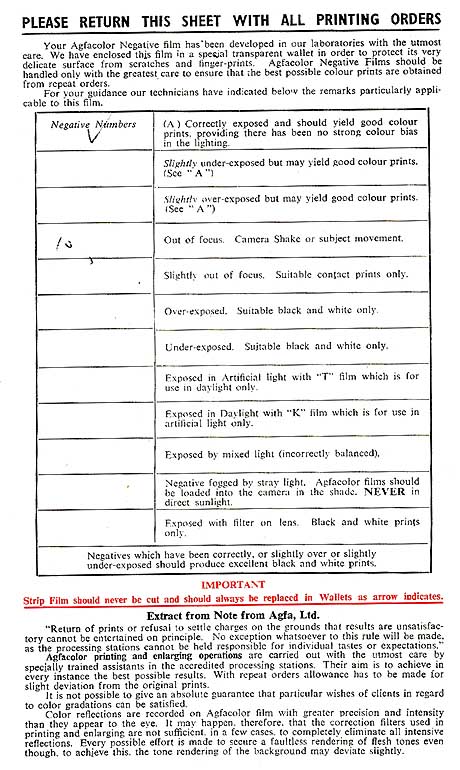 PLEASE RETURN THIS SHEET WITH ALL PRINTING ORDERS
Your Agfacolor Negative film has been developed in our laboratories with the utmost
care. We have enclosed this film in a special transparent wallet in order to protect its very
delicate surface from scratches and finger-prints. Agfacolor Negative Films should be
handled only with the greatest care to ensure that the best possible colour prints are obtained
from repeat orders.
For your guidance our technicians have indicated below the remarks particularly appli-
cable to this film.
Negative Numbers
(A) Correctly exposed and should yield good colour
prints, providing there has been no strong colour bias
in the lighting.
Slightly under-exposed but may yield good colour prints.
(See "A")
Slightly over-exposed but may yield good colour prints.
(See "A")
10
Out of focus. Camera Shake or subject movement.
Slightly out of focus. Suitable contact prints only.
Over-exposed. Suitable black and white only.
Under-exposed. Suitable black and white only.
Exposed in Artificial light with "T" film which is for
use in daylight only.
Exposed in Daylight with "K" film which is for use in
artificial light only.
Exposed by mixed light (incorrectly balanced).
Negative fogged by stray light. Agfacolor films should
be loaded into the camera in the shade. NEVER in
direct sunlight.
Exposed with filter on lens. Black and white prints
only.
Negatives which have been correctly, or slightly over or slightly
under-exposed should produce excellent black and white prints.
IMPORTANT
Strip Film should never be cut and should always be replaced in Wallets as arrow indicates.
Extract from Note from Agfa, Ltd.
"Return of prints or refusal to settle charges on the grounds that results are unsatisfac-
tory cannot be entertained on principle. No exception whatsoever to this rule will be made,
as the processing stations cannot be held responsible for individual tastes or expectations."
Agfacolor printing and enlarging operations are carried out with the utmost care by
specially trained assistants in the accredited processing stations. Their aim is to achieve in
every instance the best possible results. With repeat orders allowance has to be made for
slight deviation from the original prints.
It is not possible to give an absolute guarantee that particular wishes of clients in regard
to color gradations can be satisfied.
Color reflections are recorded on Agfacolor film with greater precision and intensity
than they appear to the eye. It may happen, therefore, that the correction filters used in
printing and enlarging are not sufficient, in a few cases, to completely eliminate all intensive
reflections. Every possible effort is made to secure a faultless rendering of flesh tones even
though, to achieve this, the tone rendering of the background may deviate slightly.